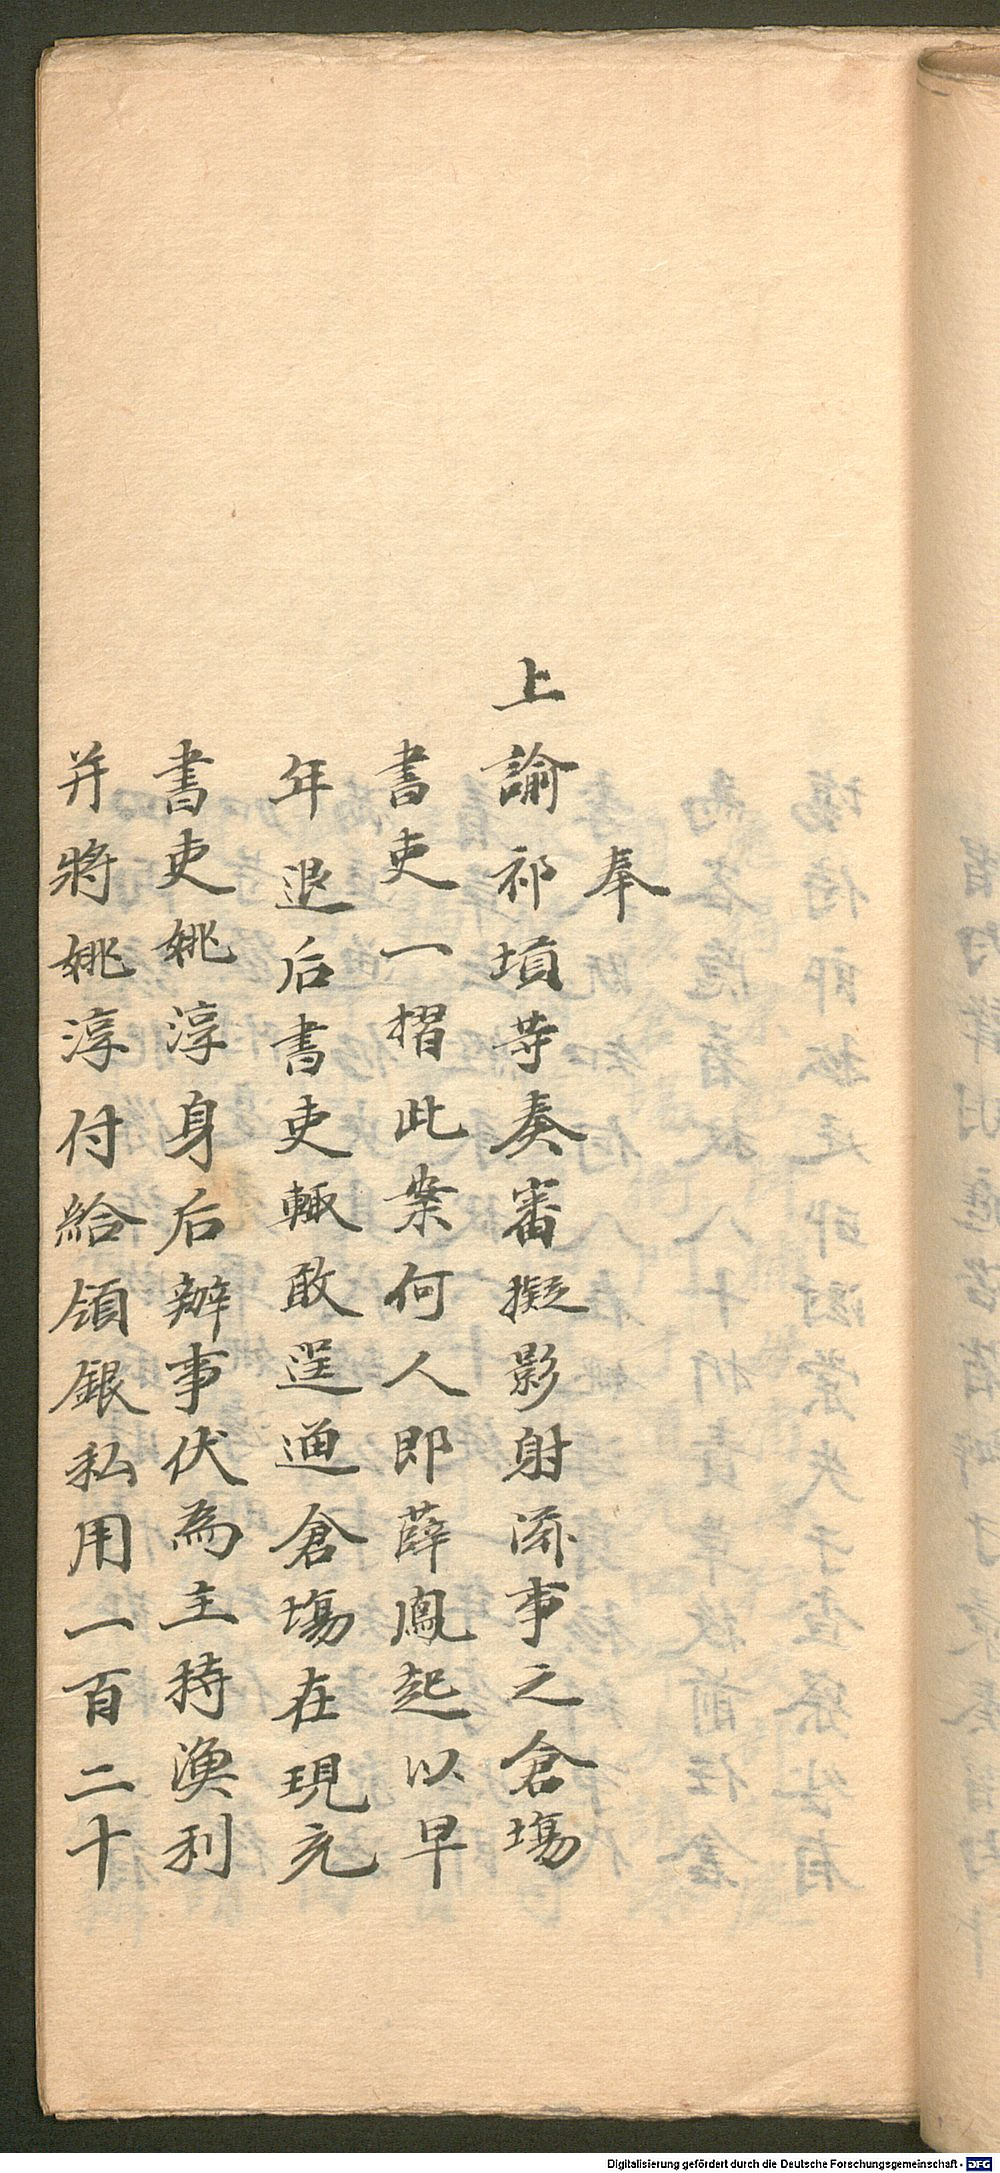 奉
上諭祁𡍼等奏審擬影射漕事之倉塲
書吏一摺此案何人即薛鳳起以早
年退后書吏輙敢逞通倉塲在現充
書吏姚淳身后辦事伏為主持漁利
并將姚淳付給領銀私用一百二十
Digitalisierung gefördert durch die Deutsche Forschungsgemeinschaft - DFG